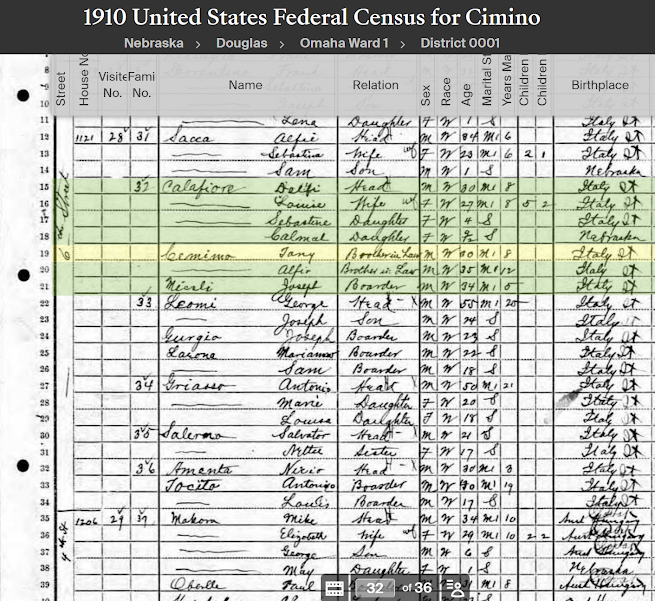 1910 United States Federal Census for Cimino
Nebraska > Douglas > Omaha Ward 1 > District 0001
Street House No Visite No. Fami No. Name Relation Sex Race Age Marital S Years Ma Children Children Birthplace
8
9
10
11 Lena Daughter F W 1 S Italy
12 1121 28 31 Sacca Alfio Head M W 34 M1 6 Italy
13 Sebastina Wife F W 23 M1 6 2 1 Italy
14 Sam Son M W 1 S Nebraska
15 32 Calafiore Delfi Head M W 30 M1 8 Italy
16 Louise Wife F W 27 M1 8 5 2 Italy
17 Sebastine Daughter F W 4 S Italy
18 Calmal Daughter F W S Nebraska
19 Cemimo Tony Brother in Law M W 30 M1 8 Italy
20 Alfio Brother in Law M W 35 M1 12 Italy
21 Joseph Boarder M W 34 M1 5 Italy
22 33 Leomi George Head M W 55 M1 25 Italy
23 Joseph Son M W 24 S Italy
24 Gurgio Joseph Boarder M W 23 S Italy
25 Larone Boarder M W 22 S Italy
26 Sam Boarder M W 18 S Italy
27 34 Griasso Antonio Head M W 50 M1 21 Italy
28 Marie Daughter F W 20 S Italy
29 Louisa Daughter F W 18 S Italy
30 35 Salerno Salvator Head M W 21 S Italy
31 Nettie Sister F W 17 S Italy
32 36 Amenta Nirio Head M W 30 M1 3 Italy
33 Tocito Antonio Boarder M W 40 M1 19 Italy
34 Louis Boarder M W 17 S Italy
35 1206 29 37 Makom Mike Head M W 34 M1 10 Aust Hungary
36 Elizabeth Wife F W 29 M1 10 2 2 Aust Hungary
37 George Son M W 6 S Aust Hungary
38 May Daughter F W 1 S Nebraska
39 Oberlle Paul 31 M1 8 Aust Hungary
32 of 36